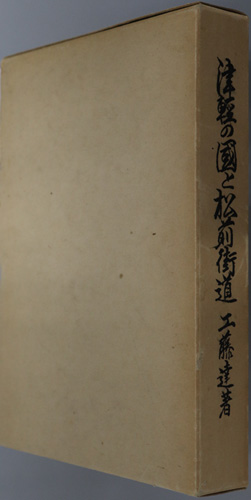 津輕の國と松前街道 工藤達著